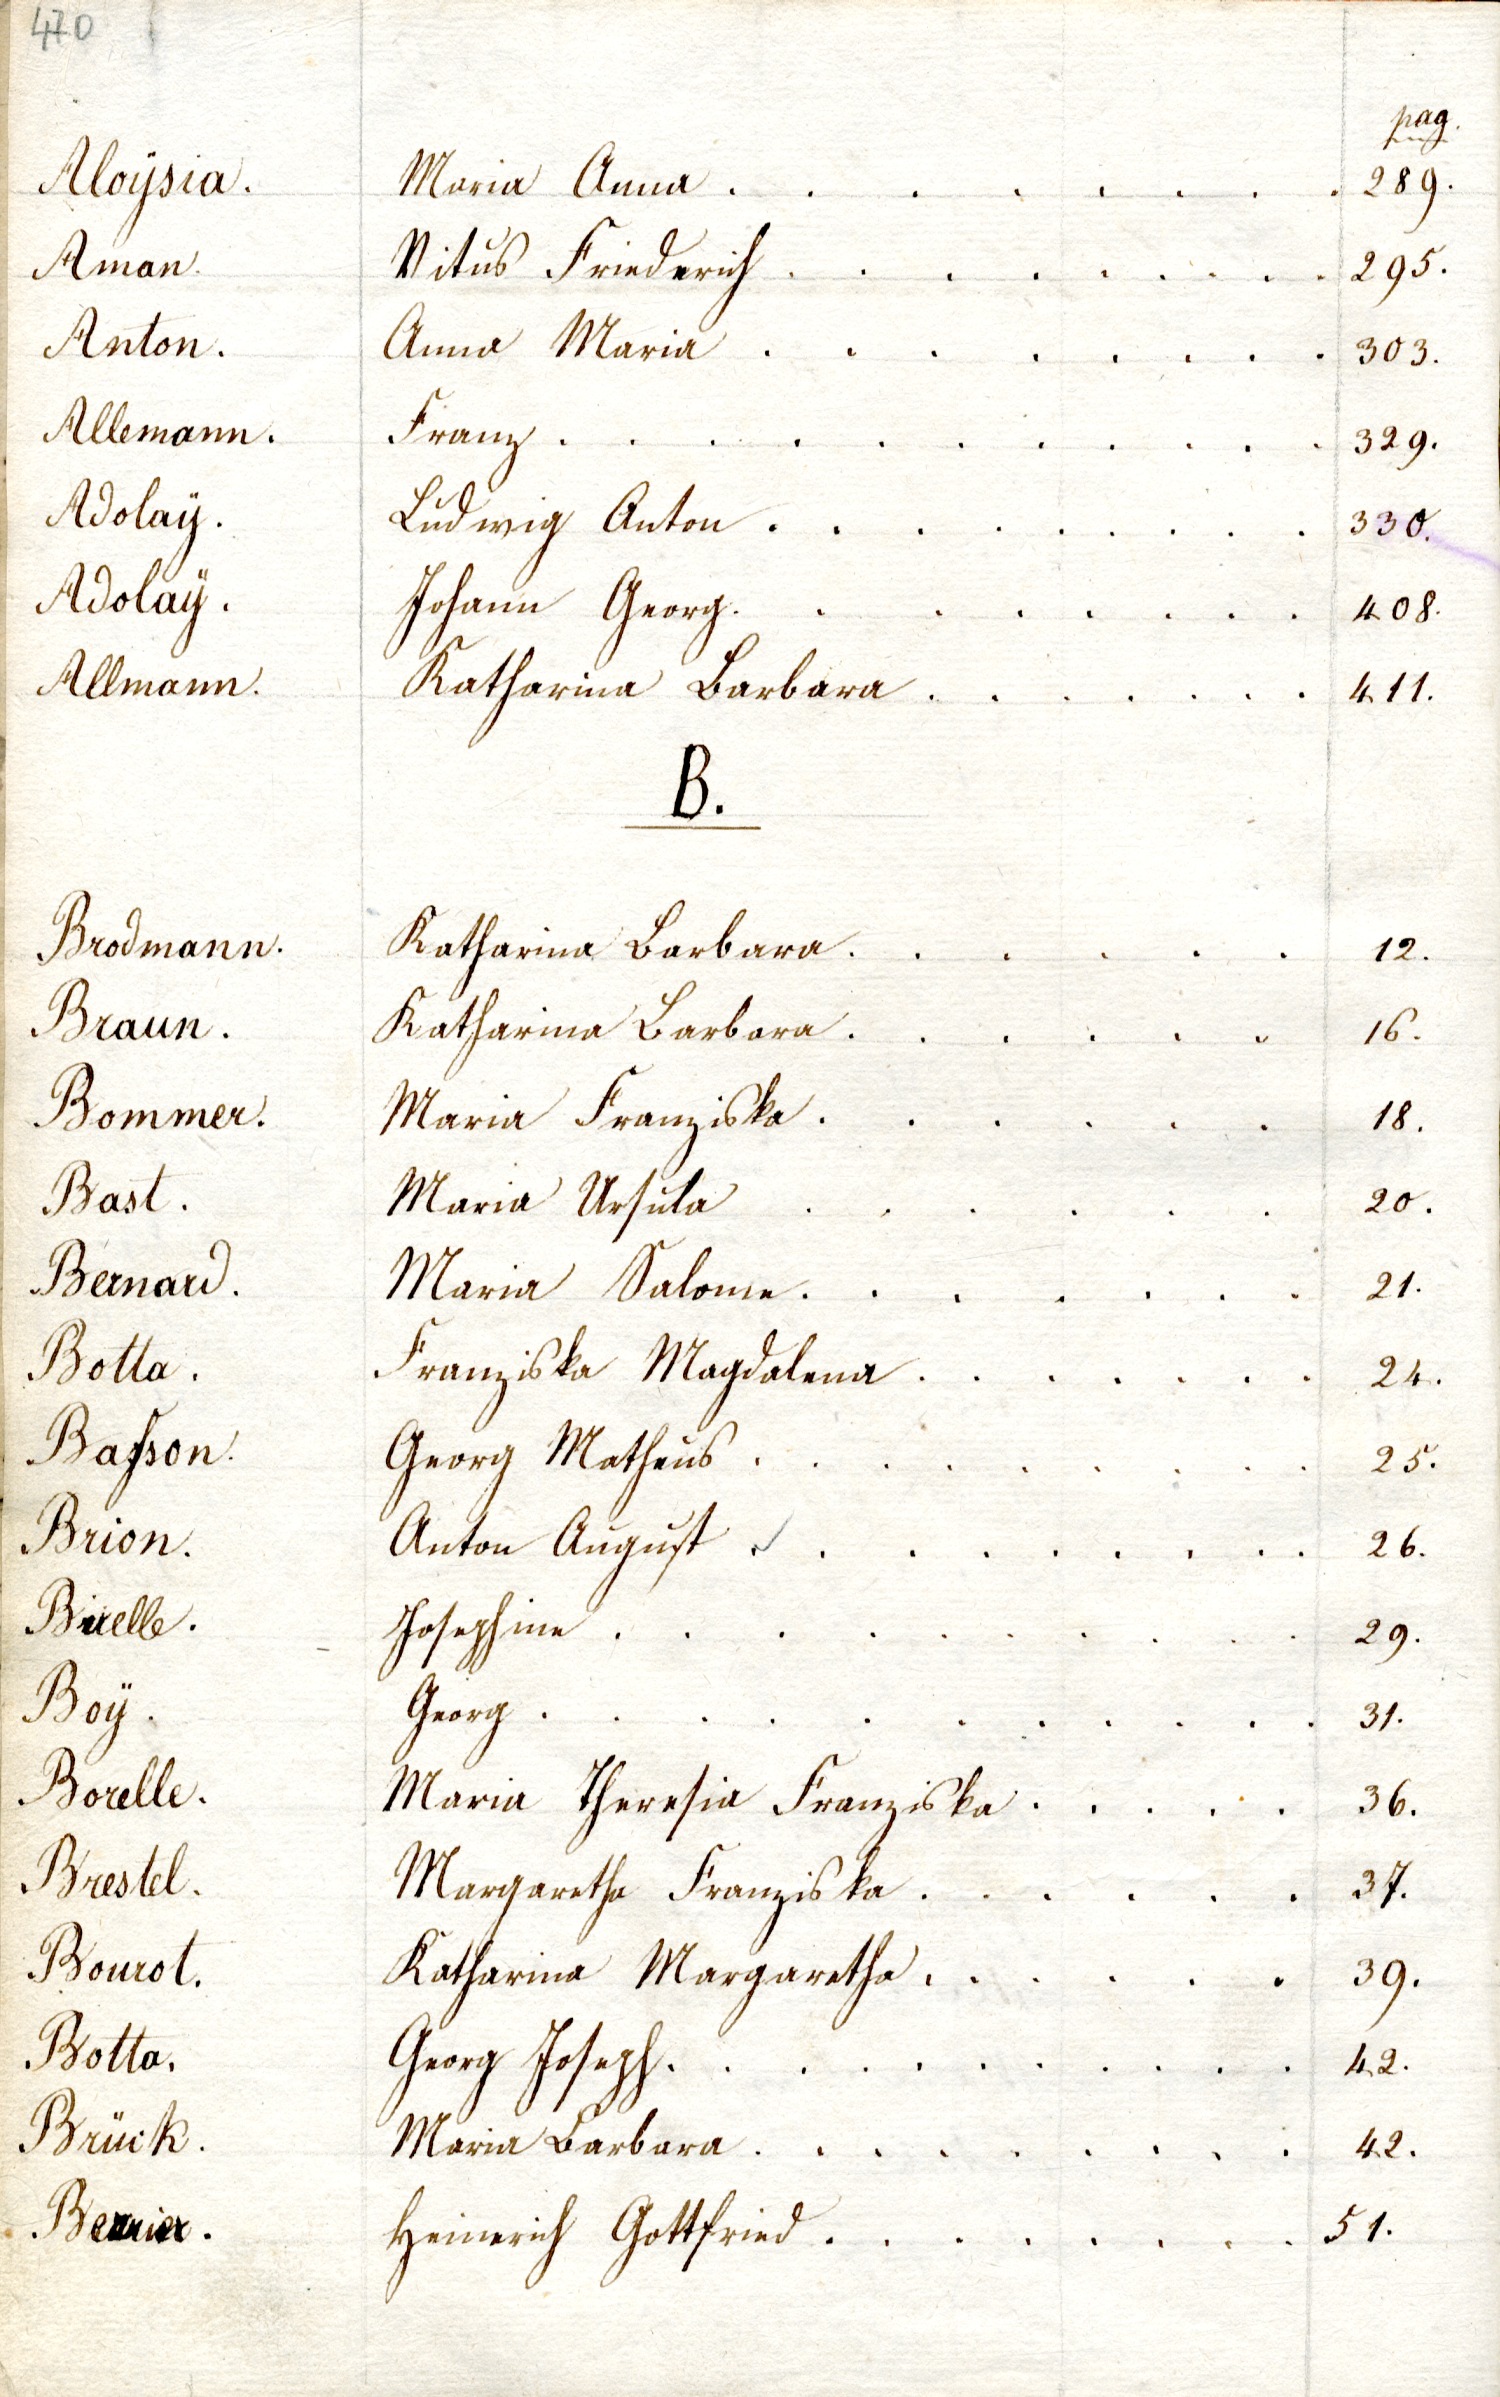 470
pag.
Aloÿsia. Maria Anna . . . . . . . . 289.
Aman. Vitus Friederich . . . . . . . . 295.
Anton. Anna Maria . . . . . . . . 303.
Allemann. Franz . . . . . . . . . . 329.
Adolaÿ. Ludwig Anton . . . . . . . . 330.
Adolaÿ. Johann Georg . . . . . . . 408.
Allmann. Katharina Barbara . . . . . . 411.
B.
Brodmann. Katharina Barbara . . . . . . 12.
Braun. Katharina Barbara . . . . . . 16.
Bommer. Maria Franziska . . . . . . 18.
Bast. Maria Ursula . . . . . . 20.
Bernard. Maria Salome . . . . . . . 21.
Botta. Franziska Magdalena . . . . . . 24.
Baſson. Georg Matheus . . . . . . . . 25.
Brion. Anton August . . . . . . . . 26.
Josephine . . . . . . . . . 29.
Boÿ. Georg . . . . . . . . . . 31.
Borelle. Maria Theresia Franziska . . . . . 36.
Brestel. Margaretha Franziska . . . . . . 37.
Bourot. Katharina Margaretha . . . . . . 39.
Botta. Georg Joseph . . . . . . . . . 42.
Brück. Maria Barbara . . . . . . . . 42.
Heinerich Gottfried . . . . . . . . 51.